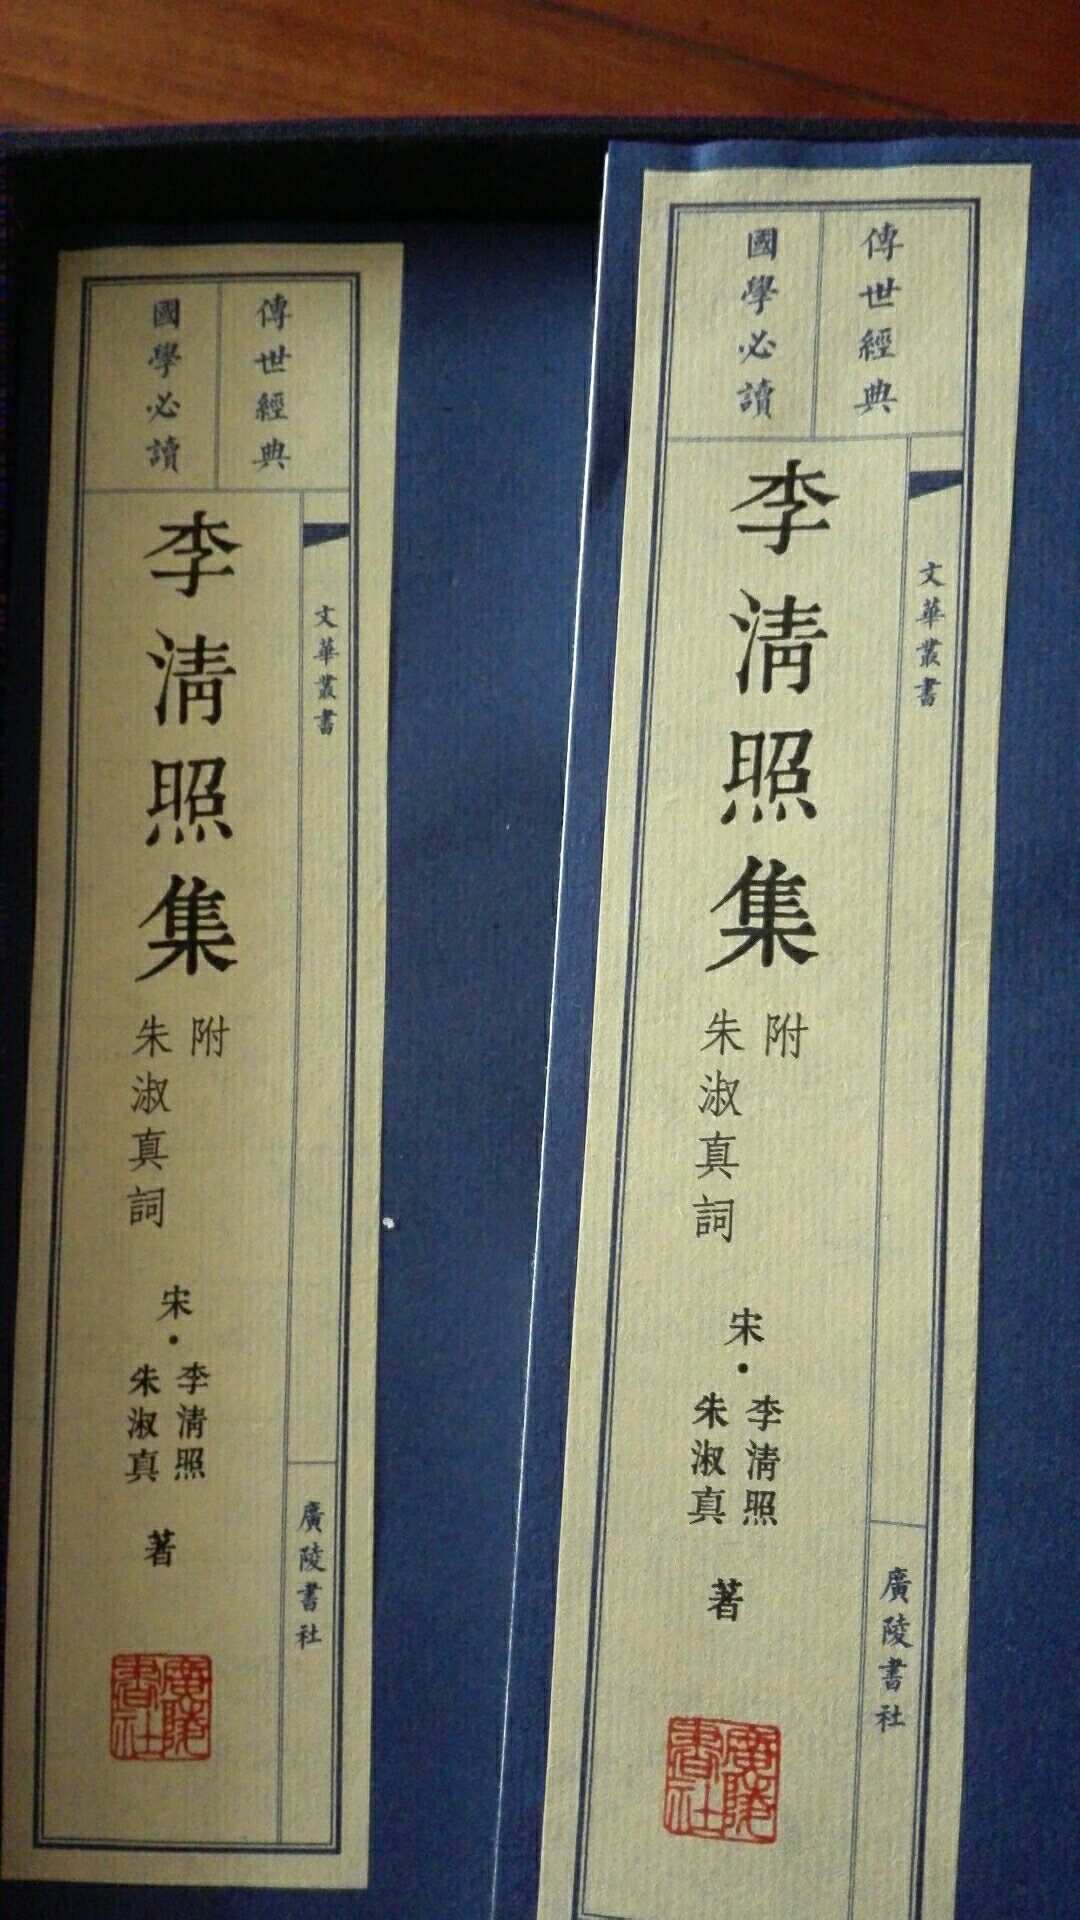 傳世經典
國學必讀
文華叢書
李清照集
附
朱淑真詞
宋·
李清照
朱淑真
著
廣陵書社
廣陵書社
傳世經典
國學必讀
文華叢書
李清照集
附
朱淑真詞
宋·
李清照
朱淑真
著
廣陵書社
廣陵書社